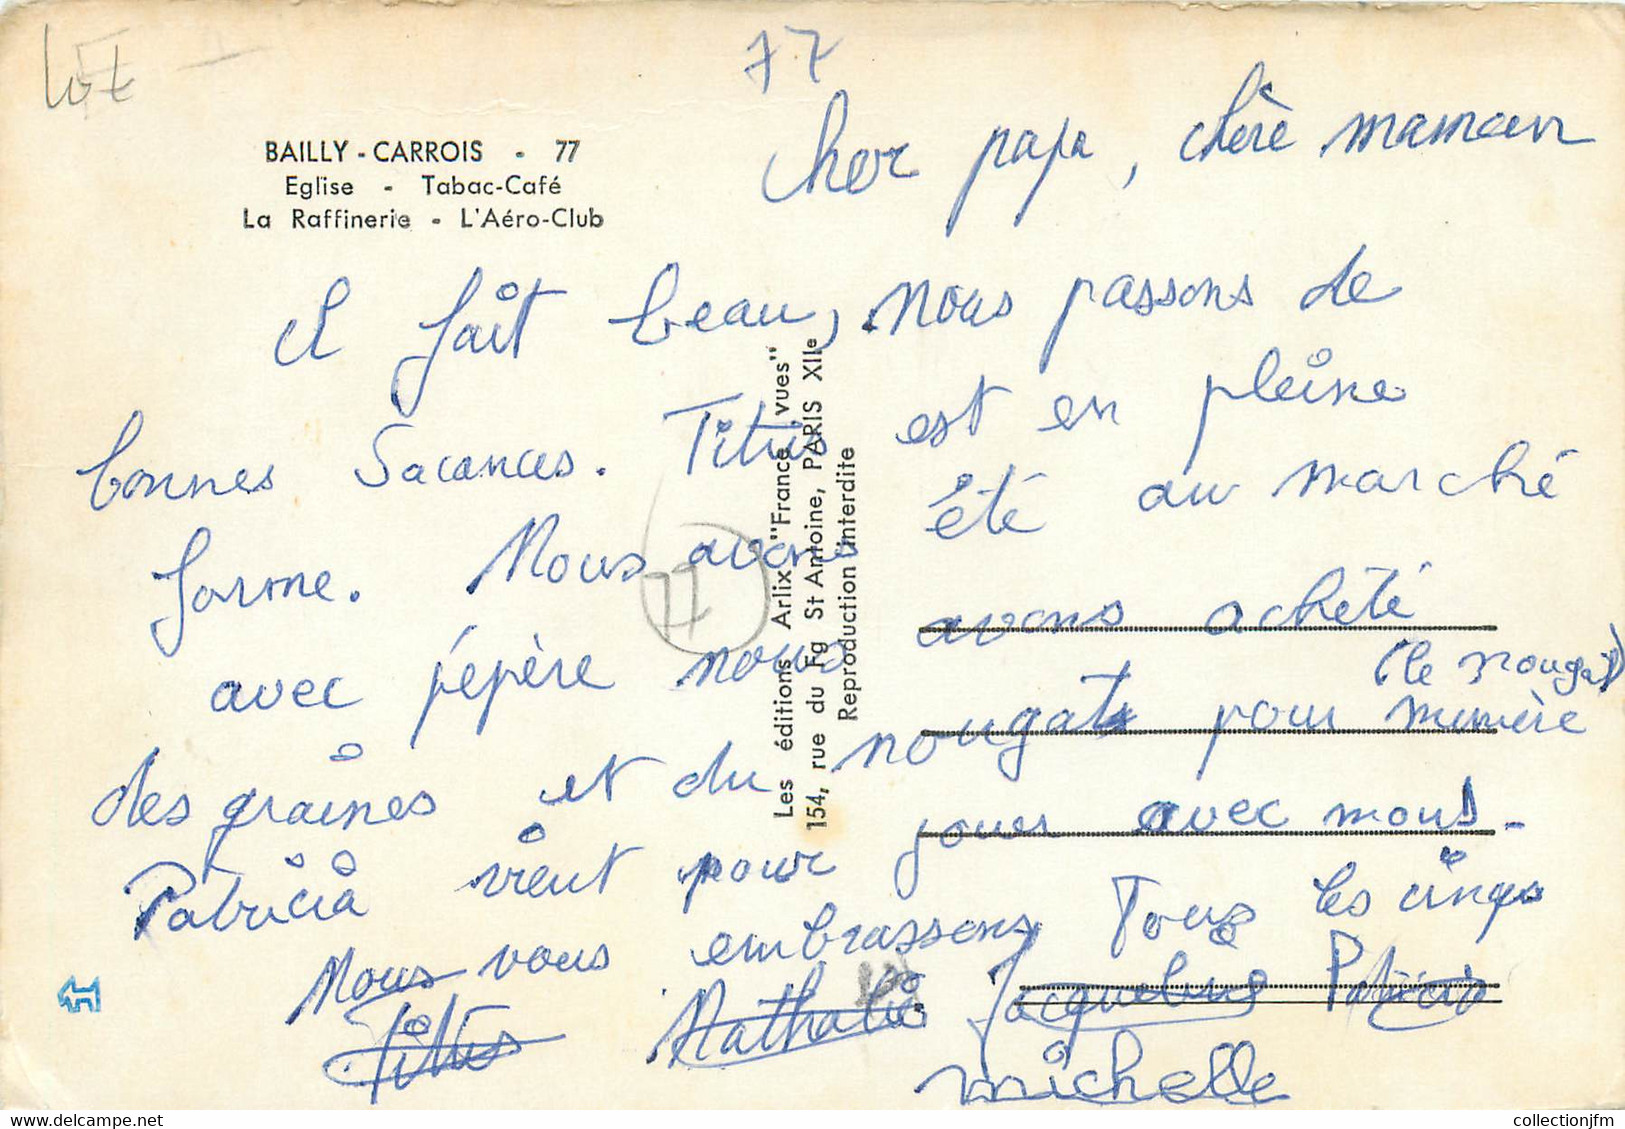 Lot
77
BAILLY - CARROIS - 77
Eglise - Tabac-Café
La Raffinerie - L'Aéro-Club
Cher papa, chère maman
il fait beau, nous passons de
bonnes Vacances. Titus est en pleine
forme. Nous avons été au marché
avec pépère nous avons acheté
des graines et du nougat pour memère
(le nougat)
Patricia vient pour jouer avec nous.
Nous vous embrassons Tous les cinqs
Titus Nathalie Jacqueline Patricia
michelle
77
Les éditions Arlix "France vues"
154, rue du Fg St Antoine, PARIS XIIe
Reproduction interdite
collectionjfm